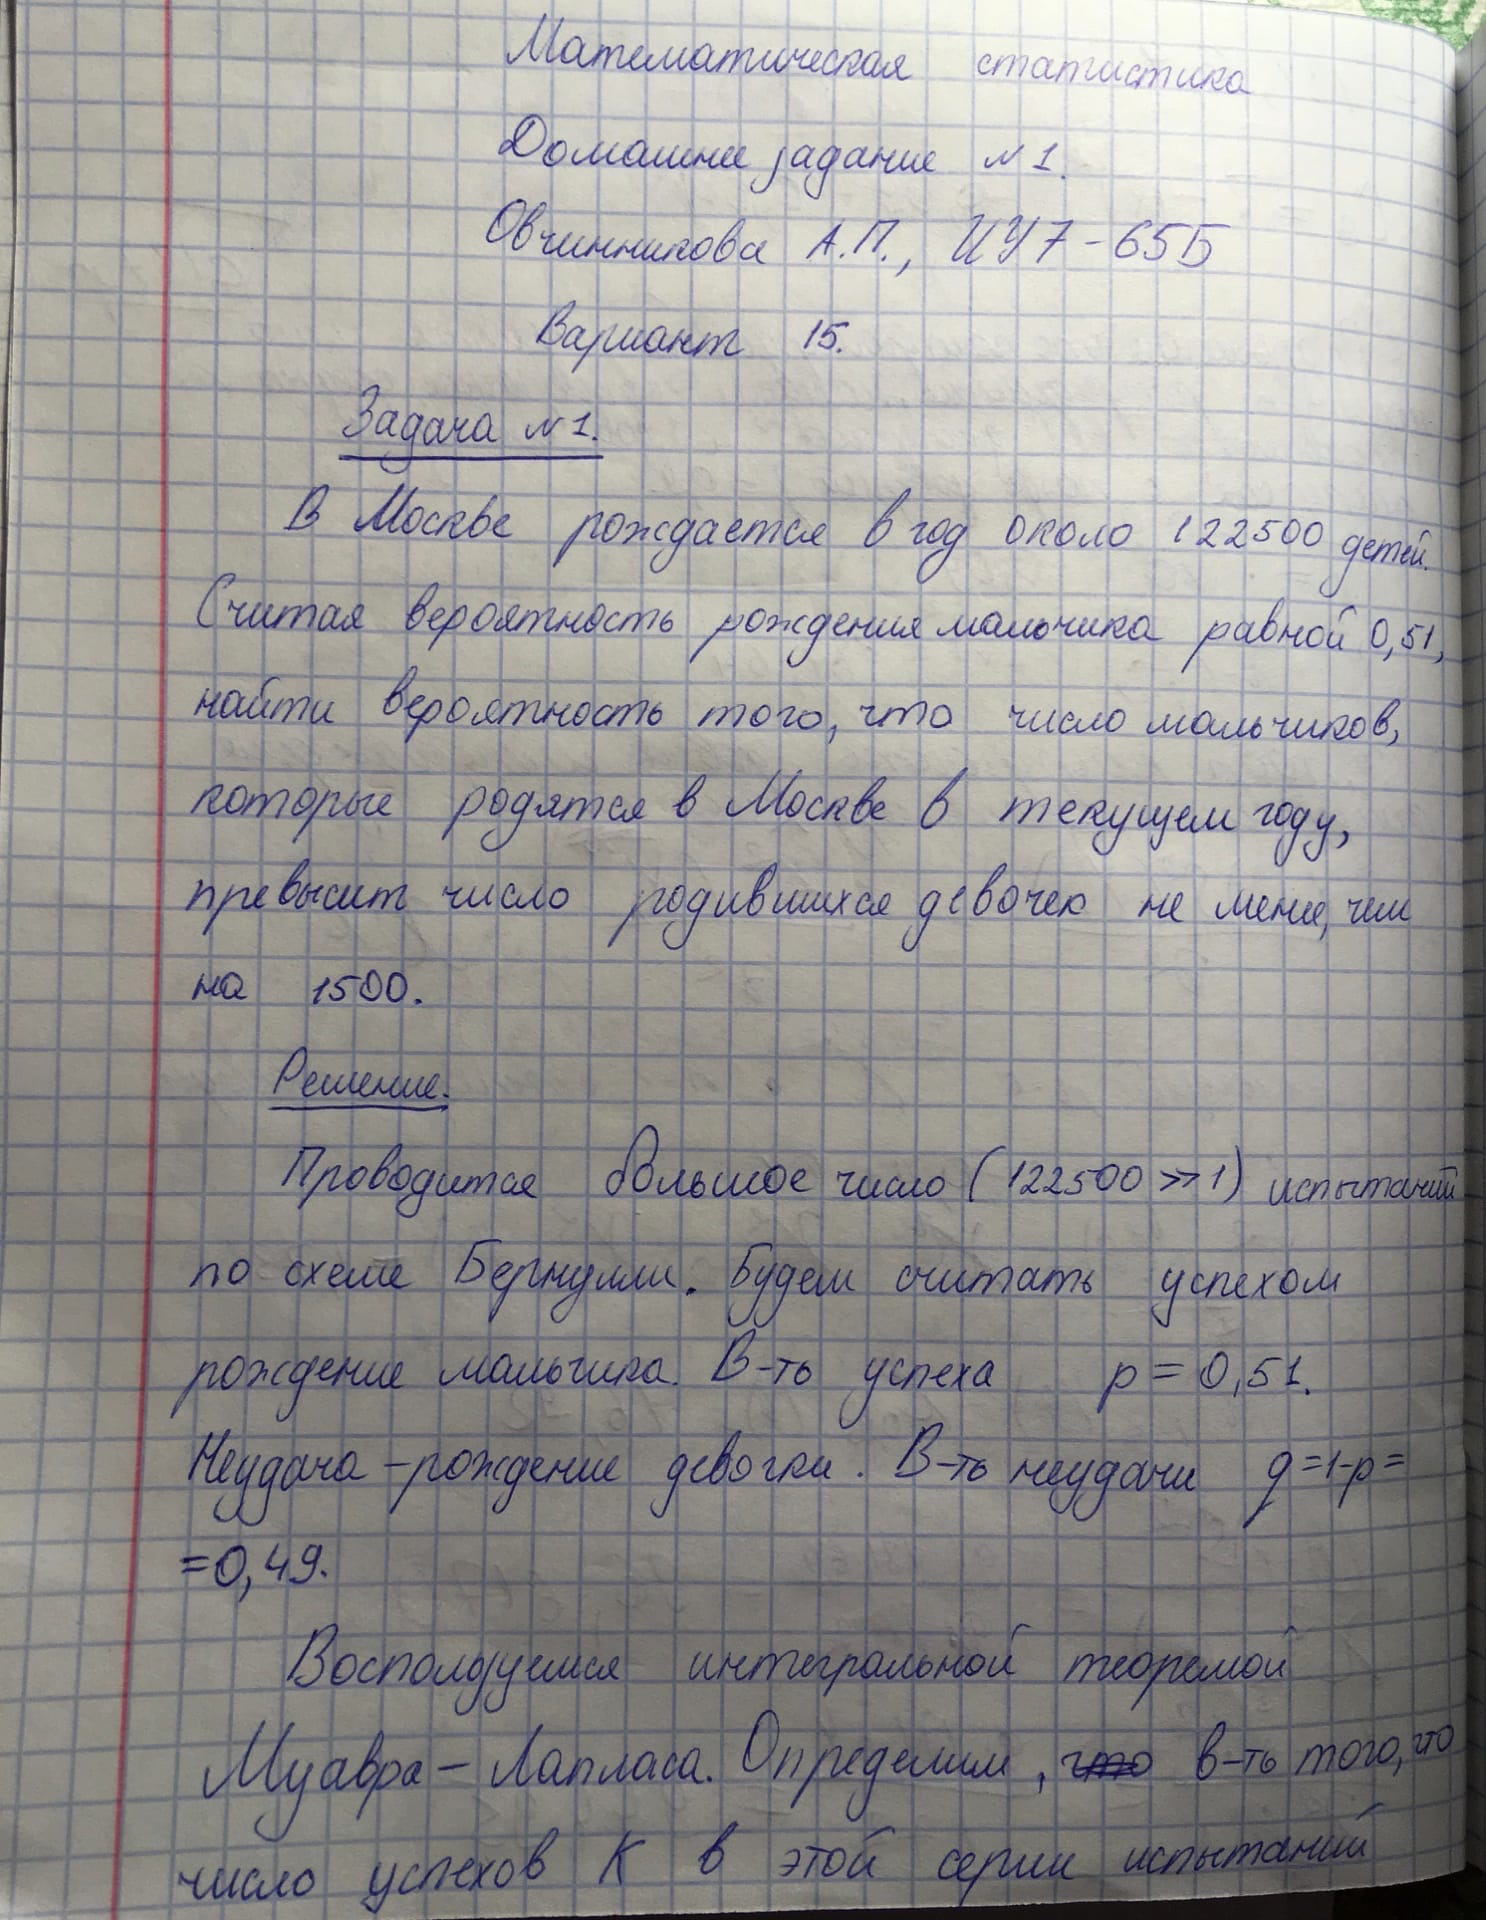 Математическая статистика
Домашнее задание №1.
Овчинникова А.П., ИУ7-65Б
Вариант 15.
Задача №1.
В Москве рождается в год около 122500 детей.
Считая вероятность рождения мальчика равной 0,51,
найти вероятность того, что число мальчиков,
которые родятся в Москве в текущем году,
превысит число родившихся девочек не менее, чем
на 1500.
Решение.
Проводится большое число (122500 >> 1) испытаний
по схеме Бернулли. Будем считать успехом
рождение мальчика. В-ть успеха p = 0,51.
Неудача – рождение девочки. В-ть неудачи q=1-p=
=0,49.
Воспользуемся интегральной теоремой
Муавра – Лапласа. Определим, в-ть того, что
число успехов К в этой серии испытаний